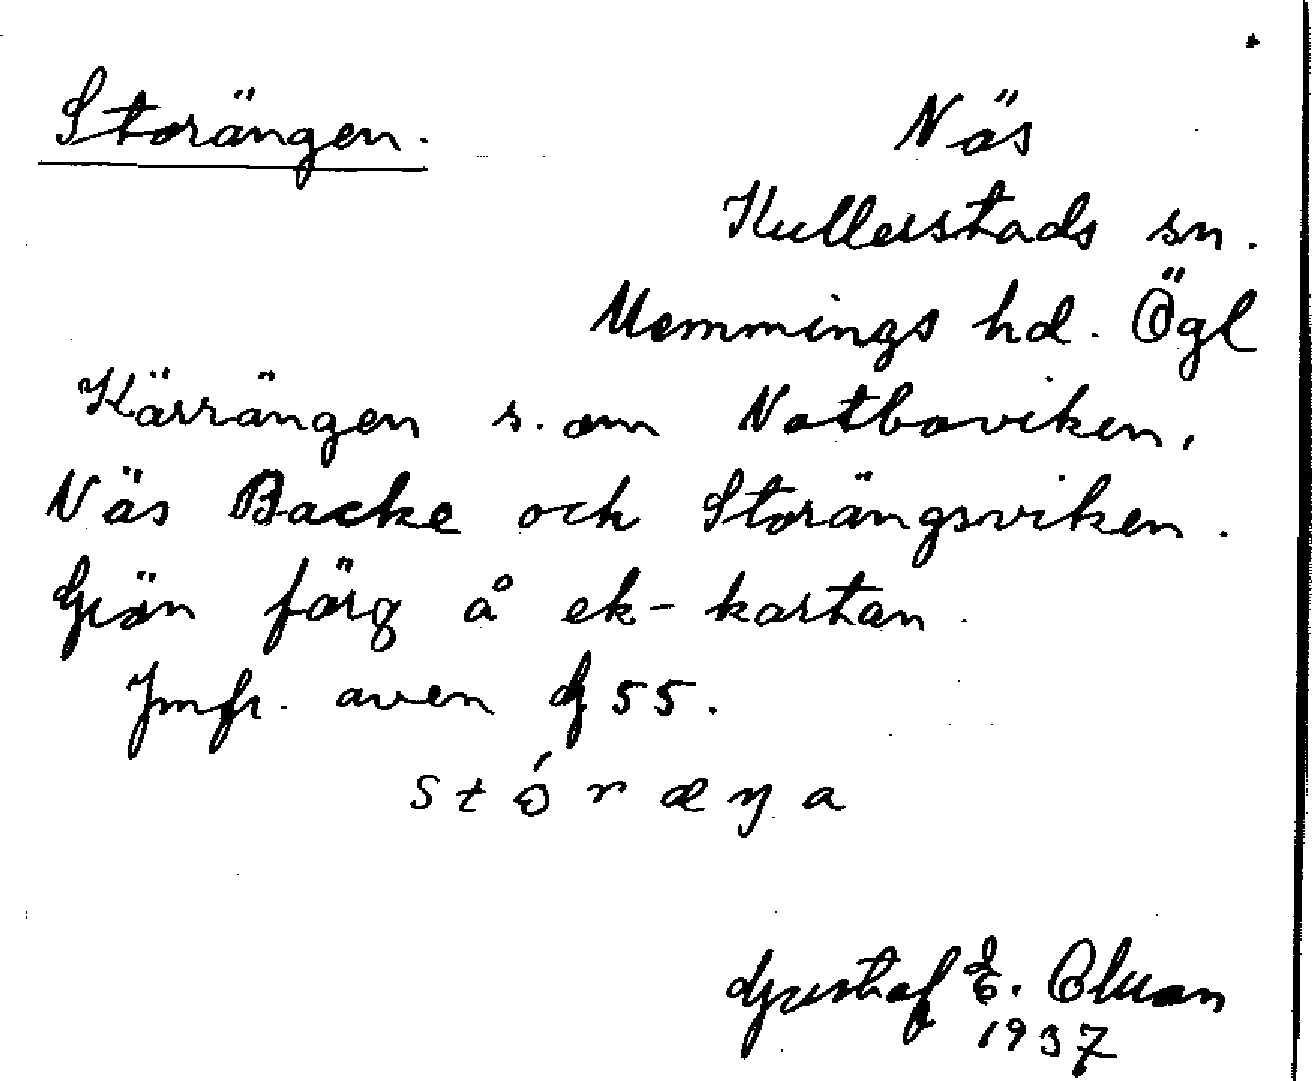 Storängen.
Näs
Kullerstads sn.
Memmings hd. Ögl
Kärrängen s. om Notboviken,
Näs Backe och Storängsviken.
Grön färg å ek-kartan.
Jmfr. aven G 55.
stóræŋa
Gustaf E. Olsson
1937